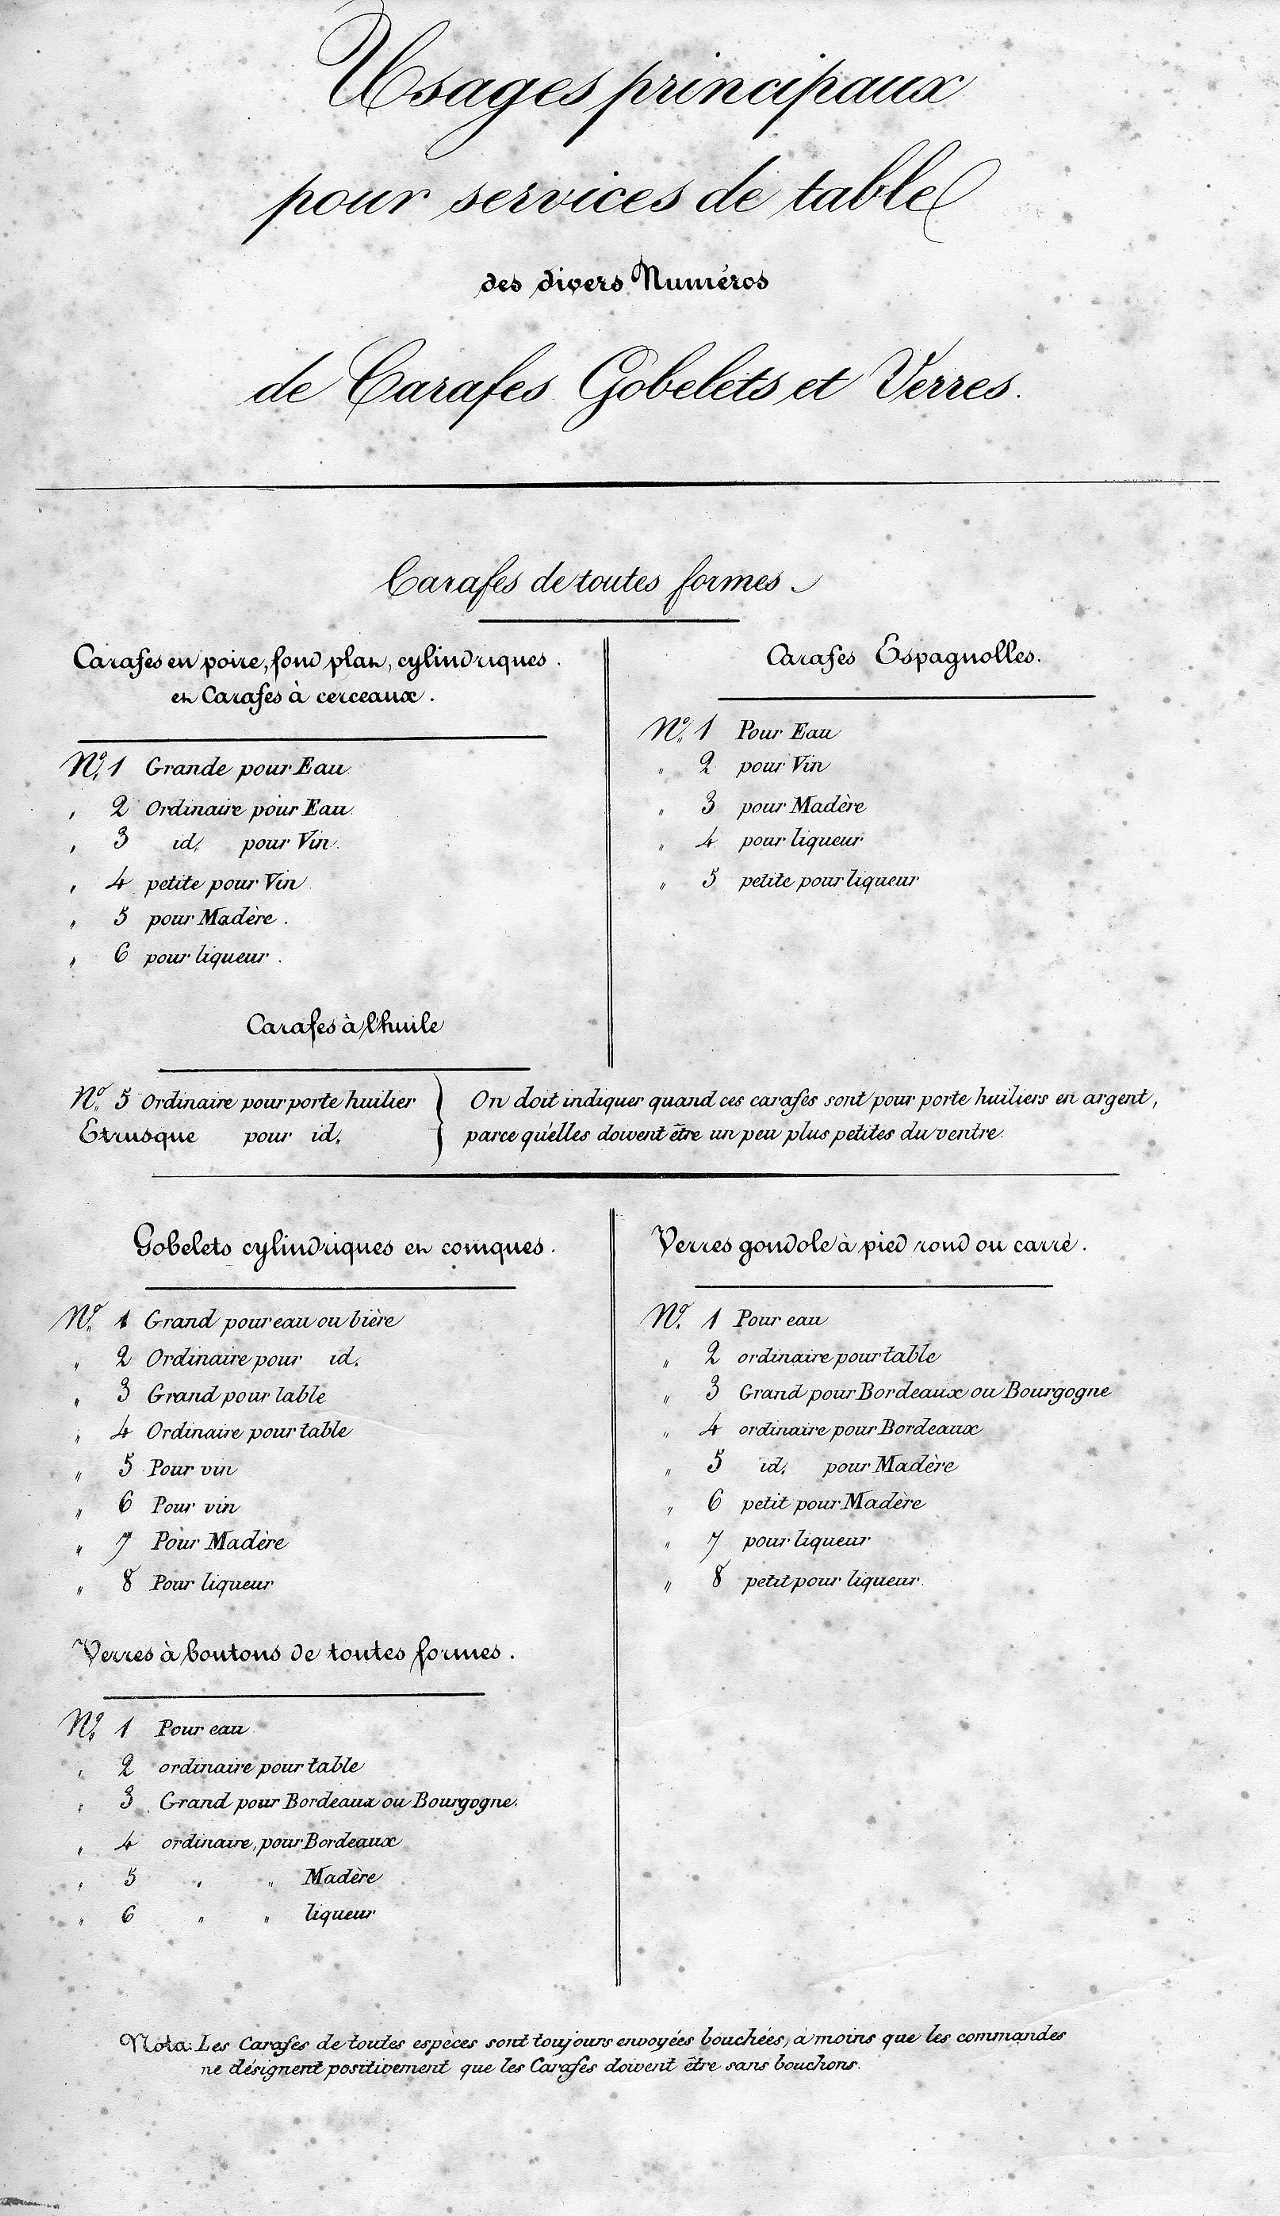 Usages principaux
pour services de table
des divers Numéros
de Carafes Gobelets et Verres.
Carafes de toutes formes.
Carafes en poire, fond plat, cylindriques.
et Carafes à cerceaux.
Nº 1 Grande pour Eau
" 2 Ordinaire pour Eau
" 3 id. pour Vin.
" 4 petite pour Vin
" 5 pour Madère.
" 6 pour liqueur.
Carafes Espagnolles.
Nº 1 Pour Eau
" 2 pour Vin
" 3 pour Madère
" 4 pour liqueur
" 5 petite pour liqueur
Carafes à l'huile
Nº 5 Ordinaire pour porte huilier
Etrusque pour id.
On doit indiquer quand ces carafes sont pour porte huiliers en argent,
parce qu'elles doivent être un peu plus petites du ventre.
Gobelets cylindriques et coniques.
Nº 1 Grand pour eau ou bière
" 2 Ordinaire pour id.
" 3 Grand pour table
" 4 Ordinaire pour table
" 5 Pour vin
" 6 Pour vin
" 7 Pour Madère
" 8 Pour liqueur
Verres gondole à pied rond ou carré.
Nº 1 Pour eau
" 2 ordinaire pour table
" 3 Grand pour Bordeaux ou Bourgogne
" 4 ordinaire pour Bordeaux
" 5 id. pour Madère
" 6 petit pour Madère
" 7 pour liqueur
" 8 petit pour liqueur.
Verres à boutons de toutes formes.
Nº 1 Pour eau
" 2 ordinaire pour table
" 3 Grand pour Bordeaux ou Bourgogne.
" 4 ordinaire, pour Bordeaux
" 5 " " Madère
" 6 " " liqueur
Nota: Les Carafes de toutes espèces sont toujours envoyées bouchées, à moins que les commandes
ne désignent positivement que les Carafes doivent être sans bouchons.